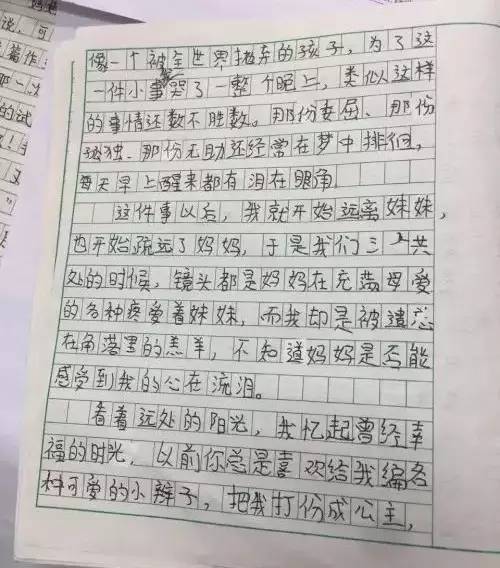 说，可
篇作
那一次
的试
像一个被全世界抛弃的孩子，为了这
一件小事哭了一整个晚上，类似这样
的事情还数不胜数。那份委屈、那份
孤独、那份无助还经常在梦中排徊，
每天早上醒来都有泪在眼角。
这件事以后，我就开始远离妹妹，
也开始疏远了妈妈，于是我们三人共
处的时候，镜头都是妈妈在充满母爱
的各种疼爱着妹妹，而我却是被遗忘
在角落里的羔羊，不知道妈妈是否能
感受到我的心在流泪。
看着远处的阳光，我忆起曾经幸
福的时光，以前你总是喜欢给我编各
种可爱的小辫子，把我打份成公主，